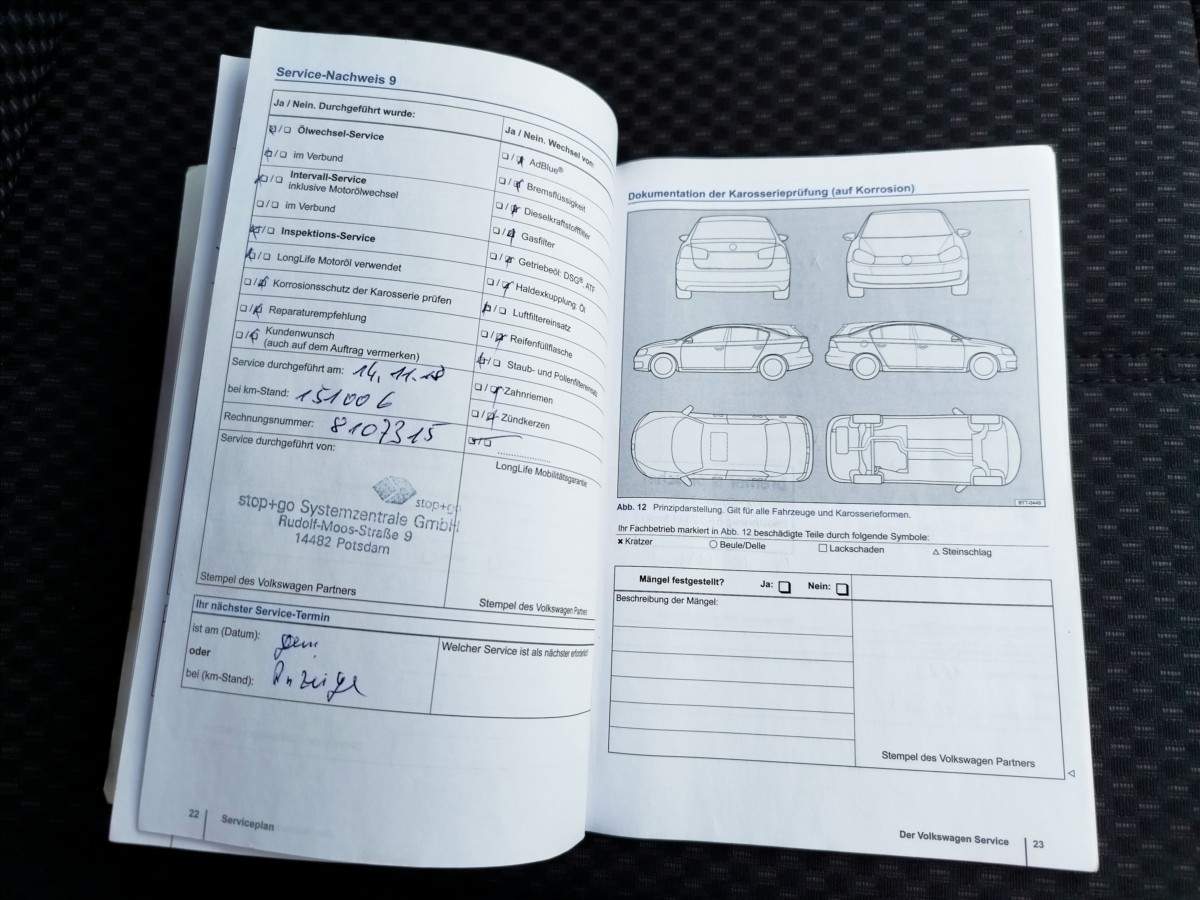 Service-Nachweis 9
Ja / Nein. Durchgeführt wurde:
Ölwechsel-Service
im Verbund
Intervall-Service
inklusive Motorölwechsel
im Verbund
Inspektions-Service
LongLife Motoröl verwendet
Korrosionsschutz der Karosserie prüfen
Reparaturempfehlung
Kundenwunsch
(auch auf dem Auftrag vermerken)
Service durchgeführt am: 14.11.18
bei km-Stand: 151006
Rechnungsnummer: 8107315
Service durchgeführt von:
stop+go
stop+go Systemzentrale GmbH
Rudolf-Moos-Straße 9
14482 Potsdam
Stempel des Volkswagen Partners
Ja / Nein. Wechsel von:
AdBlue®
Bremsflüssigkeit
Dieselkraftstofffilter
Gasfilter
Getriebeöl: DSG®, ATF
Haldexkupplung: Öl
Luftfiltereinsatz
Reifenfüllflasche
Staub- und Pollenfiltereinsatz
Zahnriemen
Zündkerzen
LongLife Mobilitätsgarantie
Stempel des Volkswagen Partner
Ihr nächster Service-Termin
ist am (Datum):
oder
bei (km-Stand): Anzeige
Welcher Service ist als nächster erforderlich
22 Serviceplan
Dokumentation der Karosserieprüfung (auf Korrosion)
Abb. 12 Prinzipdarstellung. Gilt für alle Fahrzeuge und Karosserieformen.
Ihr Fachbetrieb markiert in Abb. 12 beschädigte Teile durch folgende Symbole:
Kratzer Beule/Delle Lackschaden Steinschlag
Mängel festgestellt? Ja: Nein:
Beschreibung der Mängel:
Stempel des Volkswagen Partners
Der Volkswagen Service 23